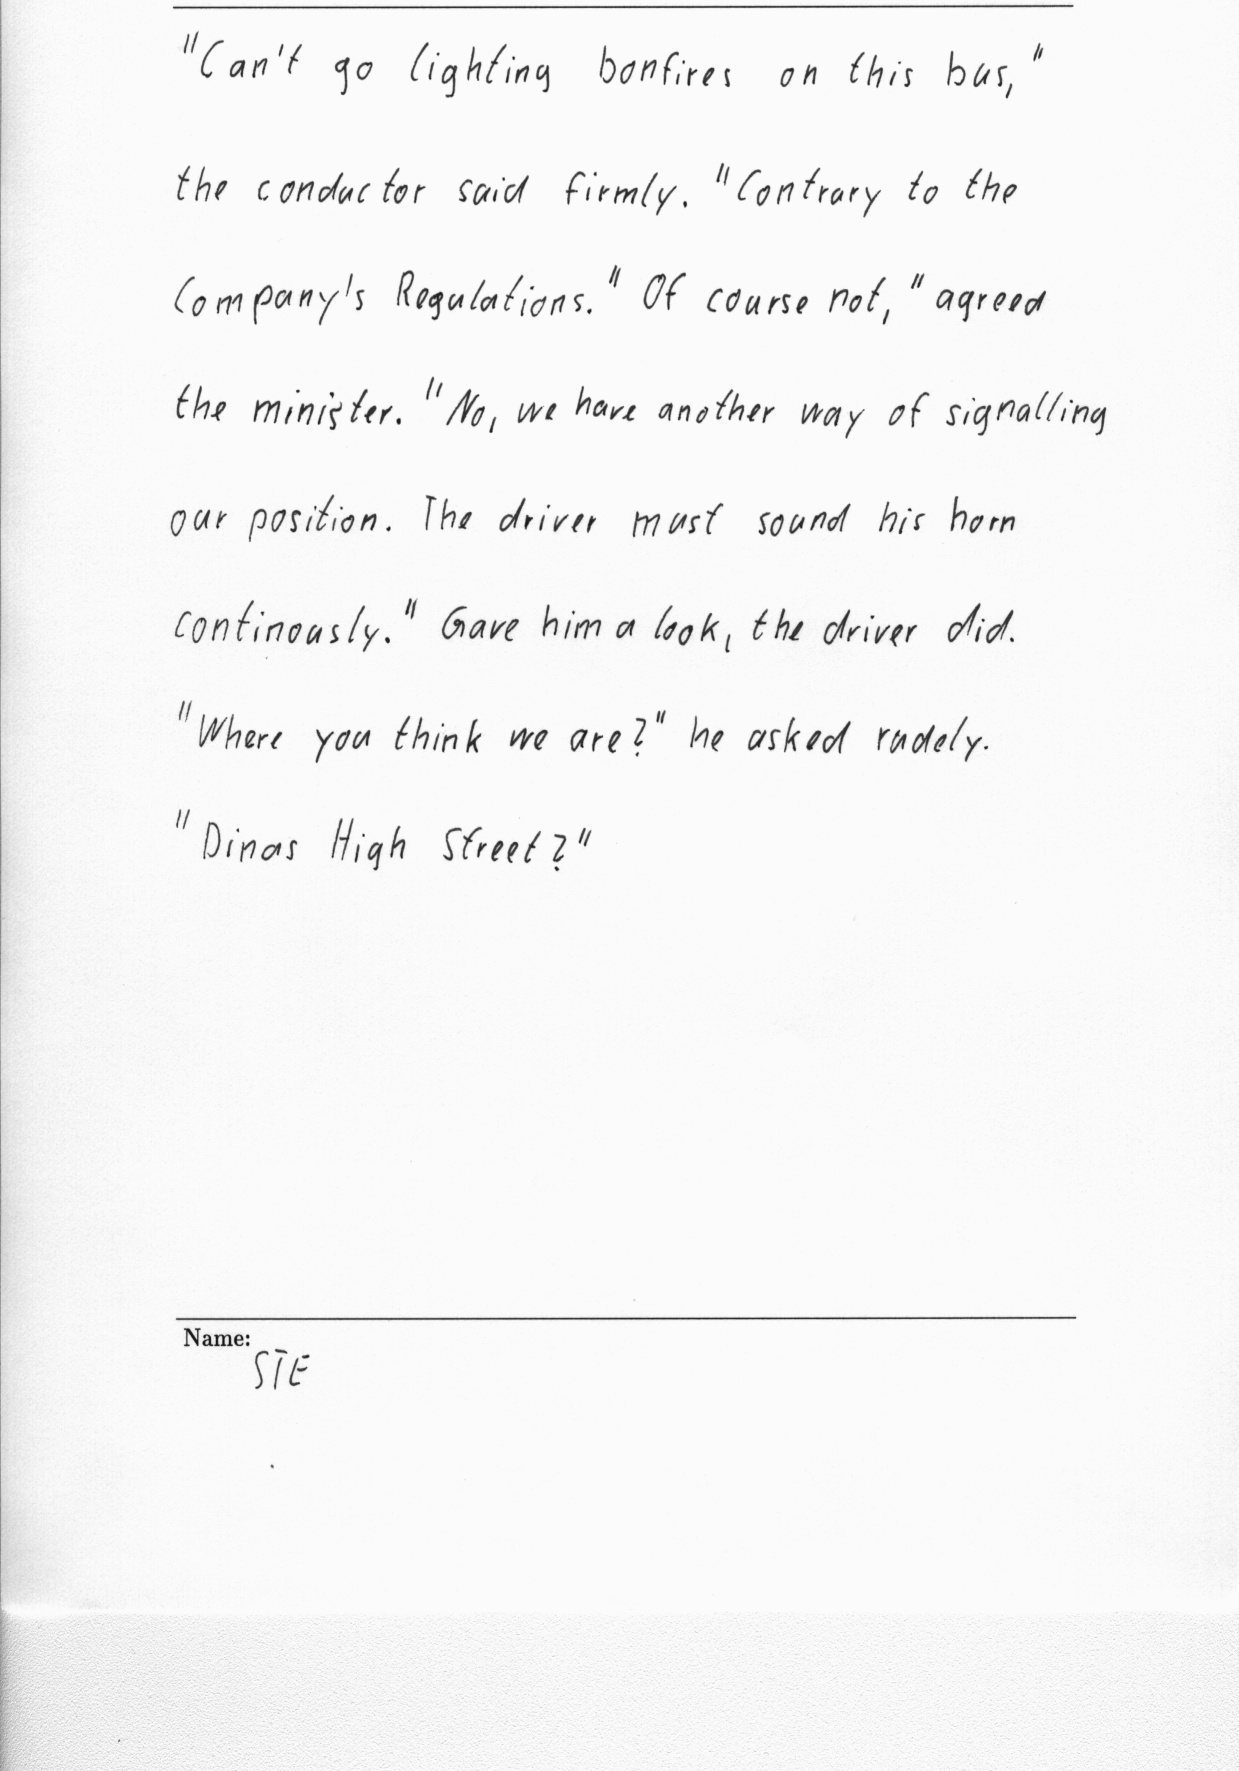 "Can't go lighting bonfires on this bus,"
the conductor said firmly. "Contrary to the
Company's Regulations." Of course not," agreed
the minister. "No, we have another way of signalling
our position. The driver must sound his horn
continously." Gave him a look, the driver did.
"Where you think we are?" he asked rudely.
"Dinas High Street?"
Name:
STE